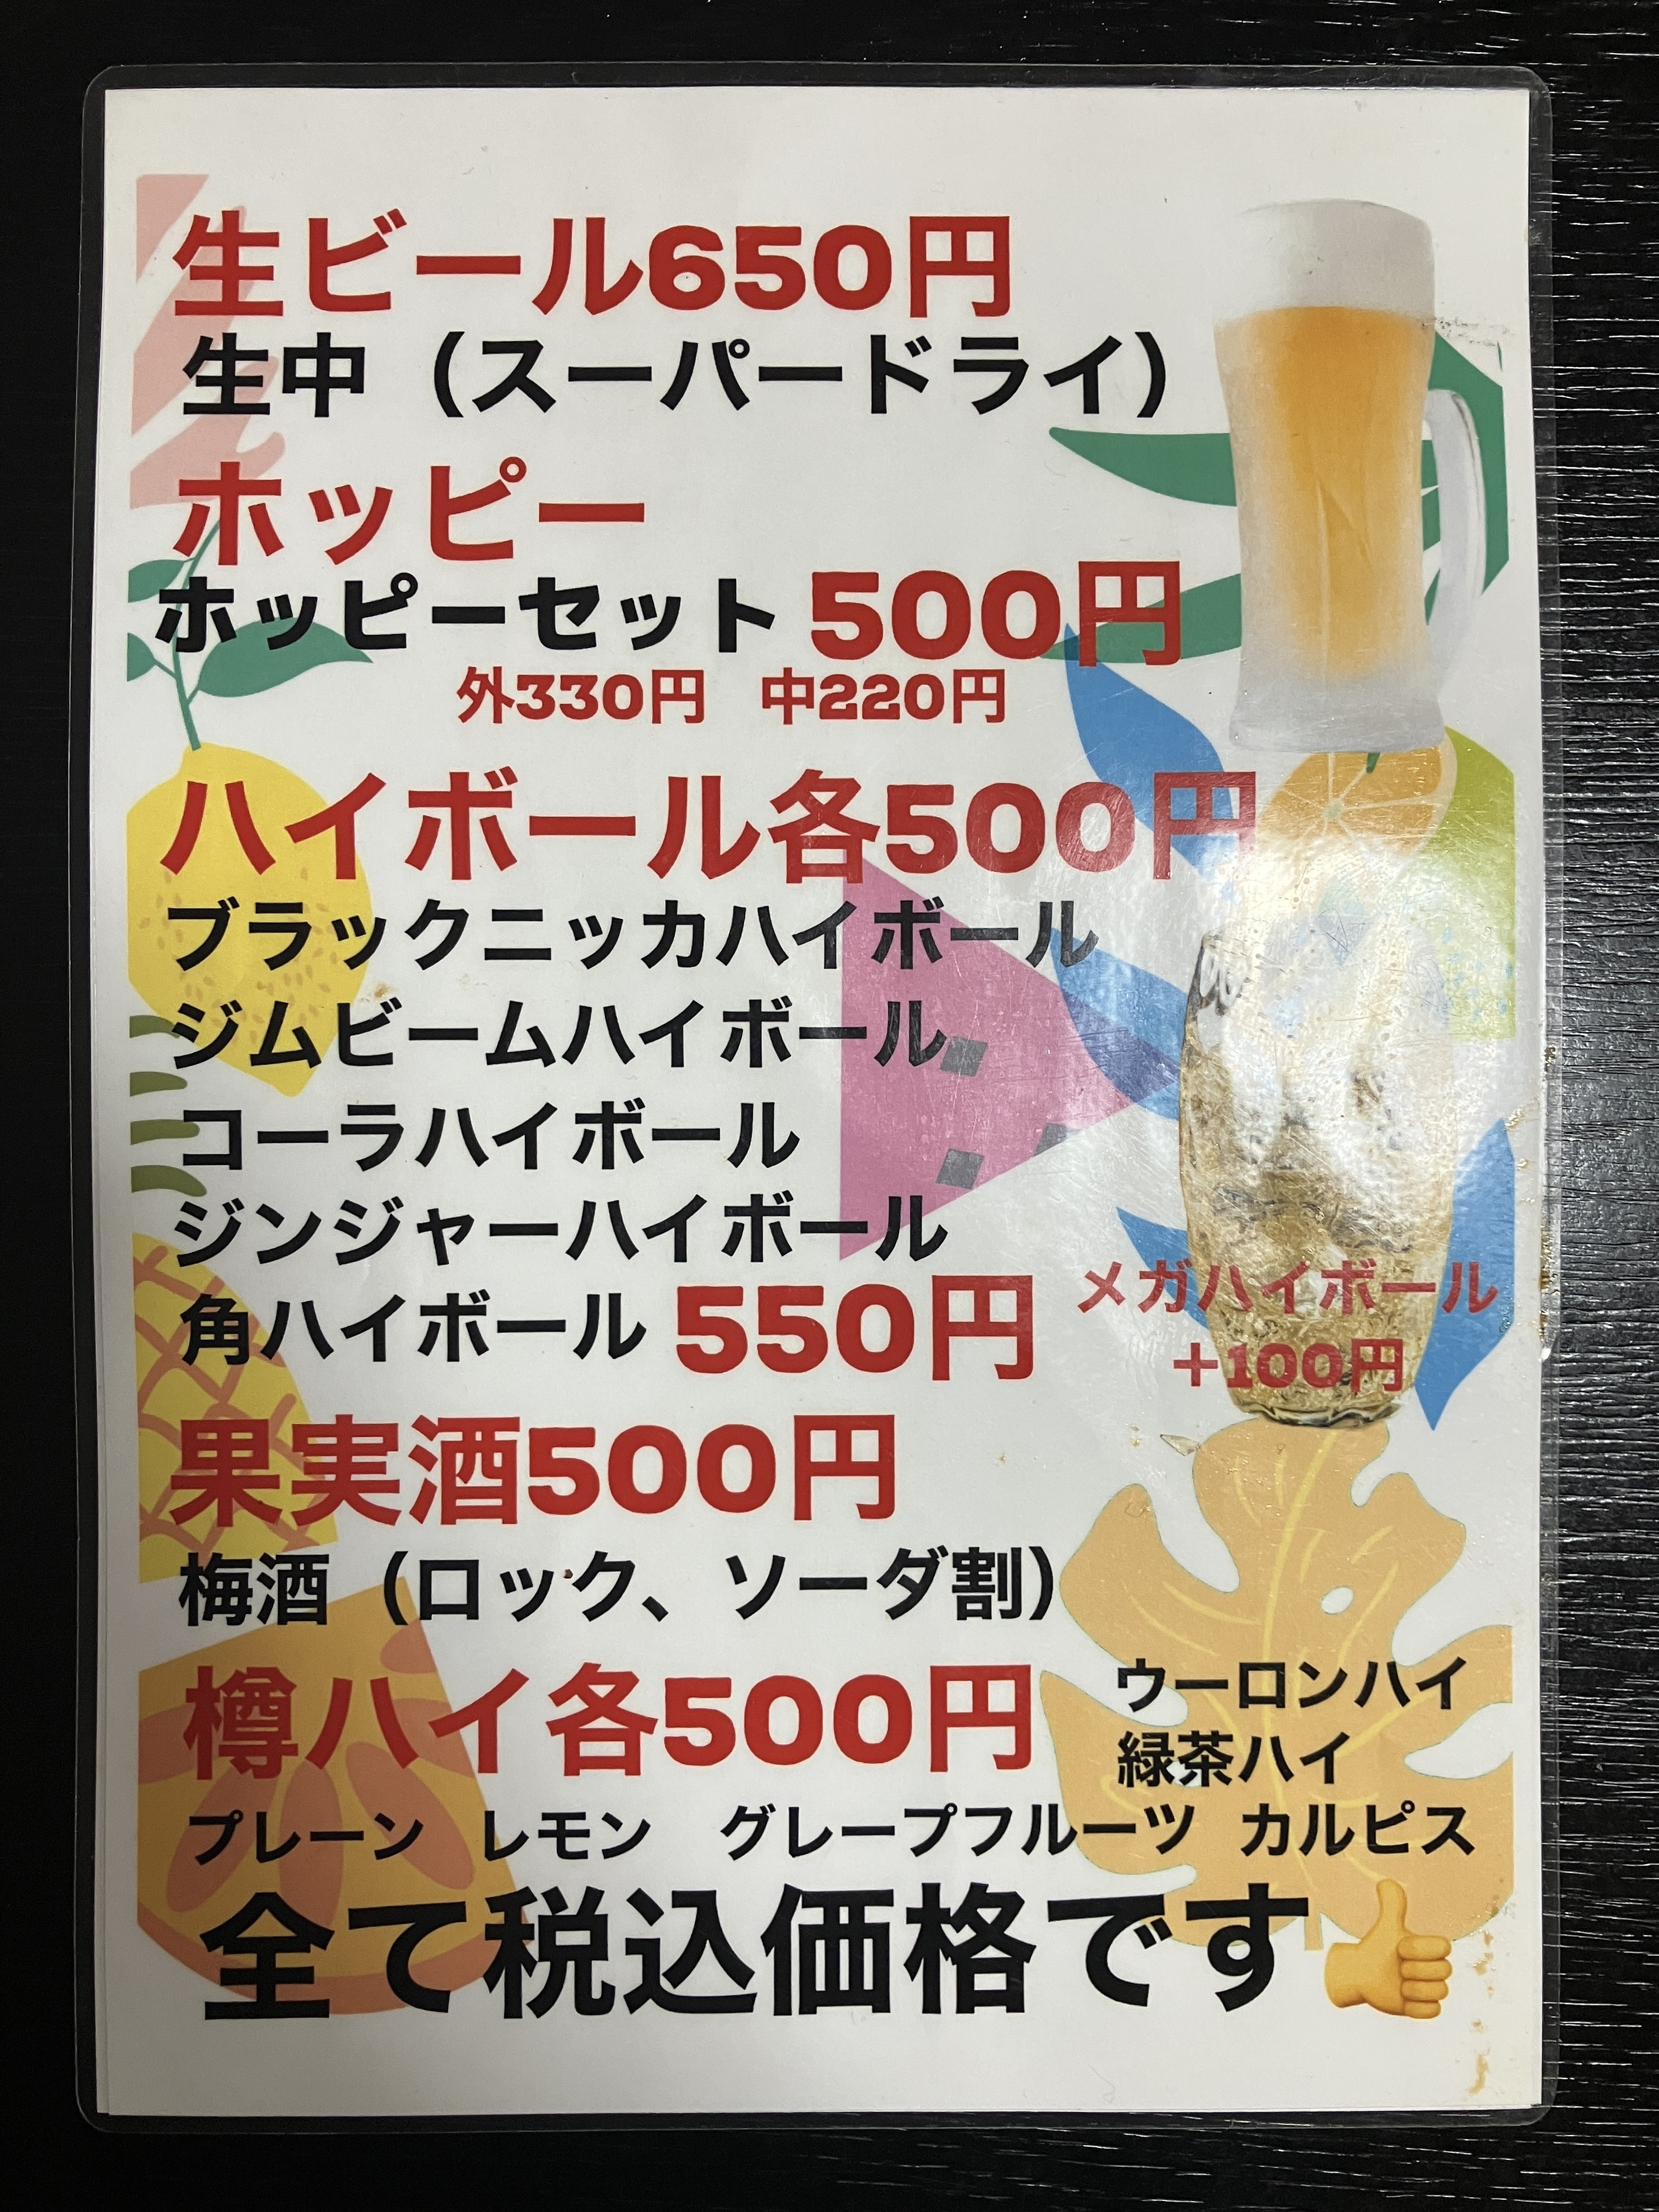 生ビール650円
生中（スーパードライ）
ホッピー
ホッピーセット 500円
外330円 中220円
ハイボール各500円
ブラックニッカハイボール
ジムビームハイボール
コーラハイボール
ジンジャーハイボール
角ハイボール 550円
メガハイボール
+100円
果実酒500円
梅酒（ロック、ソーダ割）
樽ハイ各500円
ウーロンハイ
緑茶ハイ
プレーン レモン グレープフルーツ カルピス
全て税込価格です👍